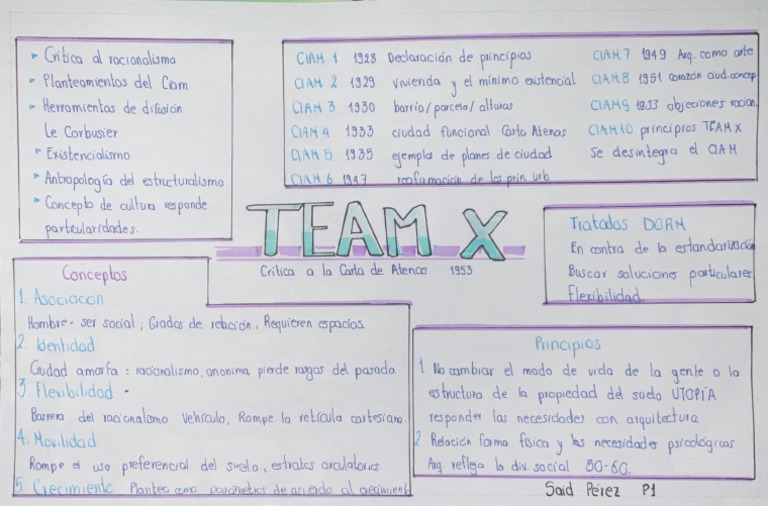 Crítica al racionalismo
Planteamientos del Ciam
Herramientas de difusión
Le Corbusier
Existencialismo
Antropología del estructuralismo
Concepto de cultura responde
particularidades.
CIAM 1 1928 Declaración de principios
CIAM 2 1929 vivienda y el mínimo existencial
CIAM 3 1930 barrio/parcela/alturas
CIAM 4 1933 ciudad funcional Carta Atenas
CIAM 5 1935 ejemplos de planes de ciudad
CIAM 6 1947 reafirmación de los prin. urb
CIAM 7 1949 Arq. como arte
CIAM 8 1951 corazón ciud. concep
CIAM 9 1953 objeciones racion.
CIAM 10 principios TEAM X
Se desintegra el CIAM
TEAM X
Crítica a la Carta de Atenas 1953
Tratados DORM
En contra de la estandarización
Buscar soluciones particulares
Flexibilidad
Conceptos
1. Asociación
Hombre - ser social, Grados de relación, Requieren espacios.
2. Identidad
Ciudad amorfa : racionalismo, anonima, pierde rasgos del pasado
3. Flexibilidad -
Barrera del racionalismo Vehículo, Rompe la retícula cartesiana.
4. Movilidad
Rompe el uso preferencial del suelo, estratos circulatorios
5. Crecimiento Plantea como parámetros de acuerdo al crecimient
Principios
1. No cambiar el modo de vida de la gente o la
estructura de la propiedad del suelo UTOPÍA
responder las necesidades con arquitectura
2 Relación forma física y las necesidades psicológicas
Arq. refleja la div. social 50-60.
Said Pérez P1